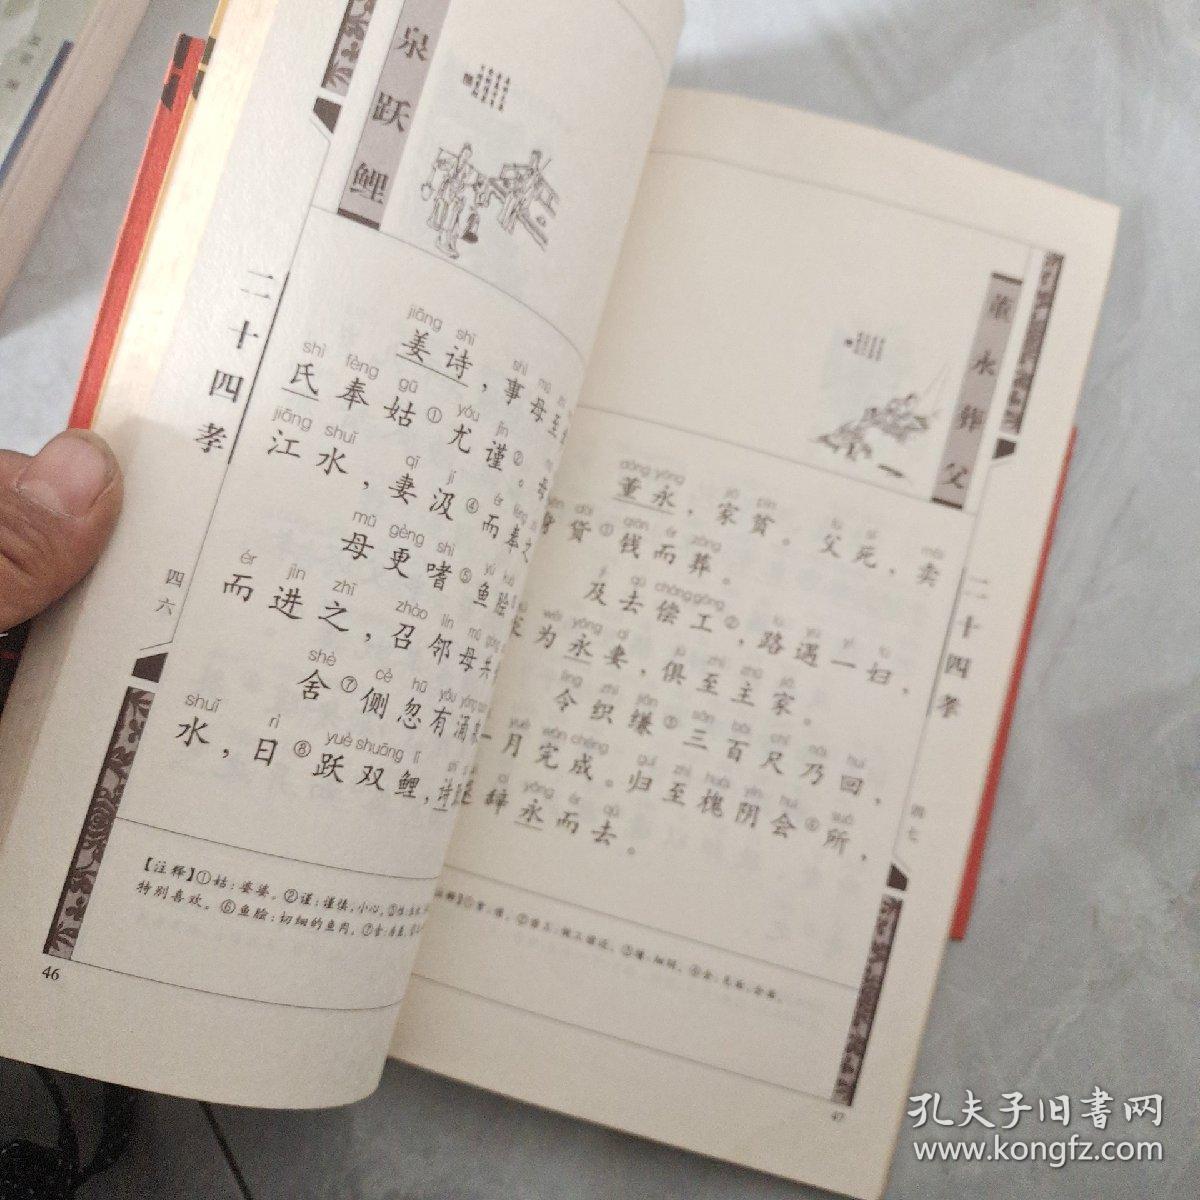 泉跃鲤
二十四孝
四六
jiāng shī
姜诗，事母至
shì fèng gū yóu jǐn
氏奉姑①尤谨②。母
jiāng shuǐ qī jí
江水，妻汲④而奉之
mǔ gèng shì
母更嗜⑤鱼脍
ér jìn zhī zhào lín mǔ
而进之，召邻母共
shè cè hū yǒu yǒng
舍⑦侧忽有涌泉
shuǐ rì yuè shuāng lǐ
水，日⑧跃双鲤，诗
【注释】①姑：婆婆。②谨：谨慎，小心。③
特别喜欢。⑥鱼脍：切细的鱼肉。⑦舍：
46
董永葬父
dǒng yǒng jiā pín fù sǐ mài
董永，家贫。父死，卖
dài qián ér zàng
身贷①钱而葬。
jí qù cháng gōng lù yù yí fù
及去偿工②，路遇一妇，
wéi yǒng qī jù zhì zhǔ jiā
求为永妻，俱至主家。
lìng zhī jiān sān bǎi chǐ nǎi huí
令织缣③三百尺乃回，
yuè wán chéng guī zhì huái yīn huì suǒ
一月完成。归至槐阴会④所，
cí yǒng ér qù
辞永而去。
二十四孝
四七
47
孔夫子旧书网
www.kongfz.com